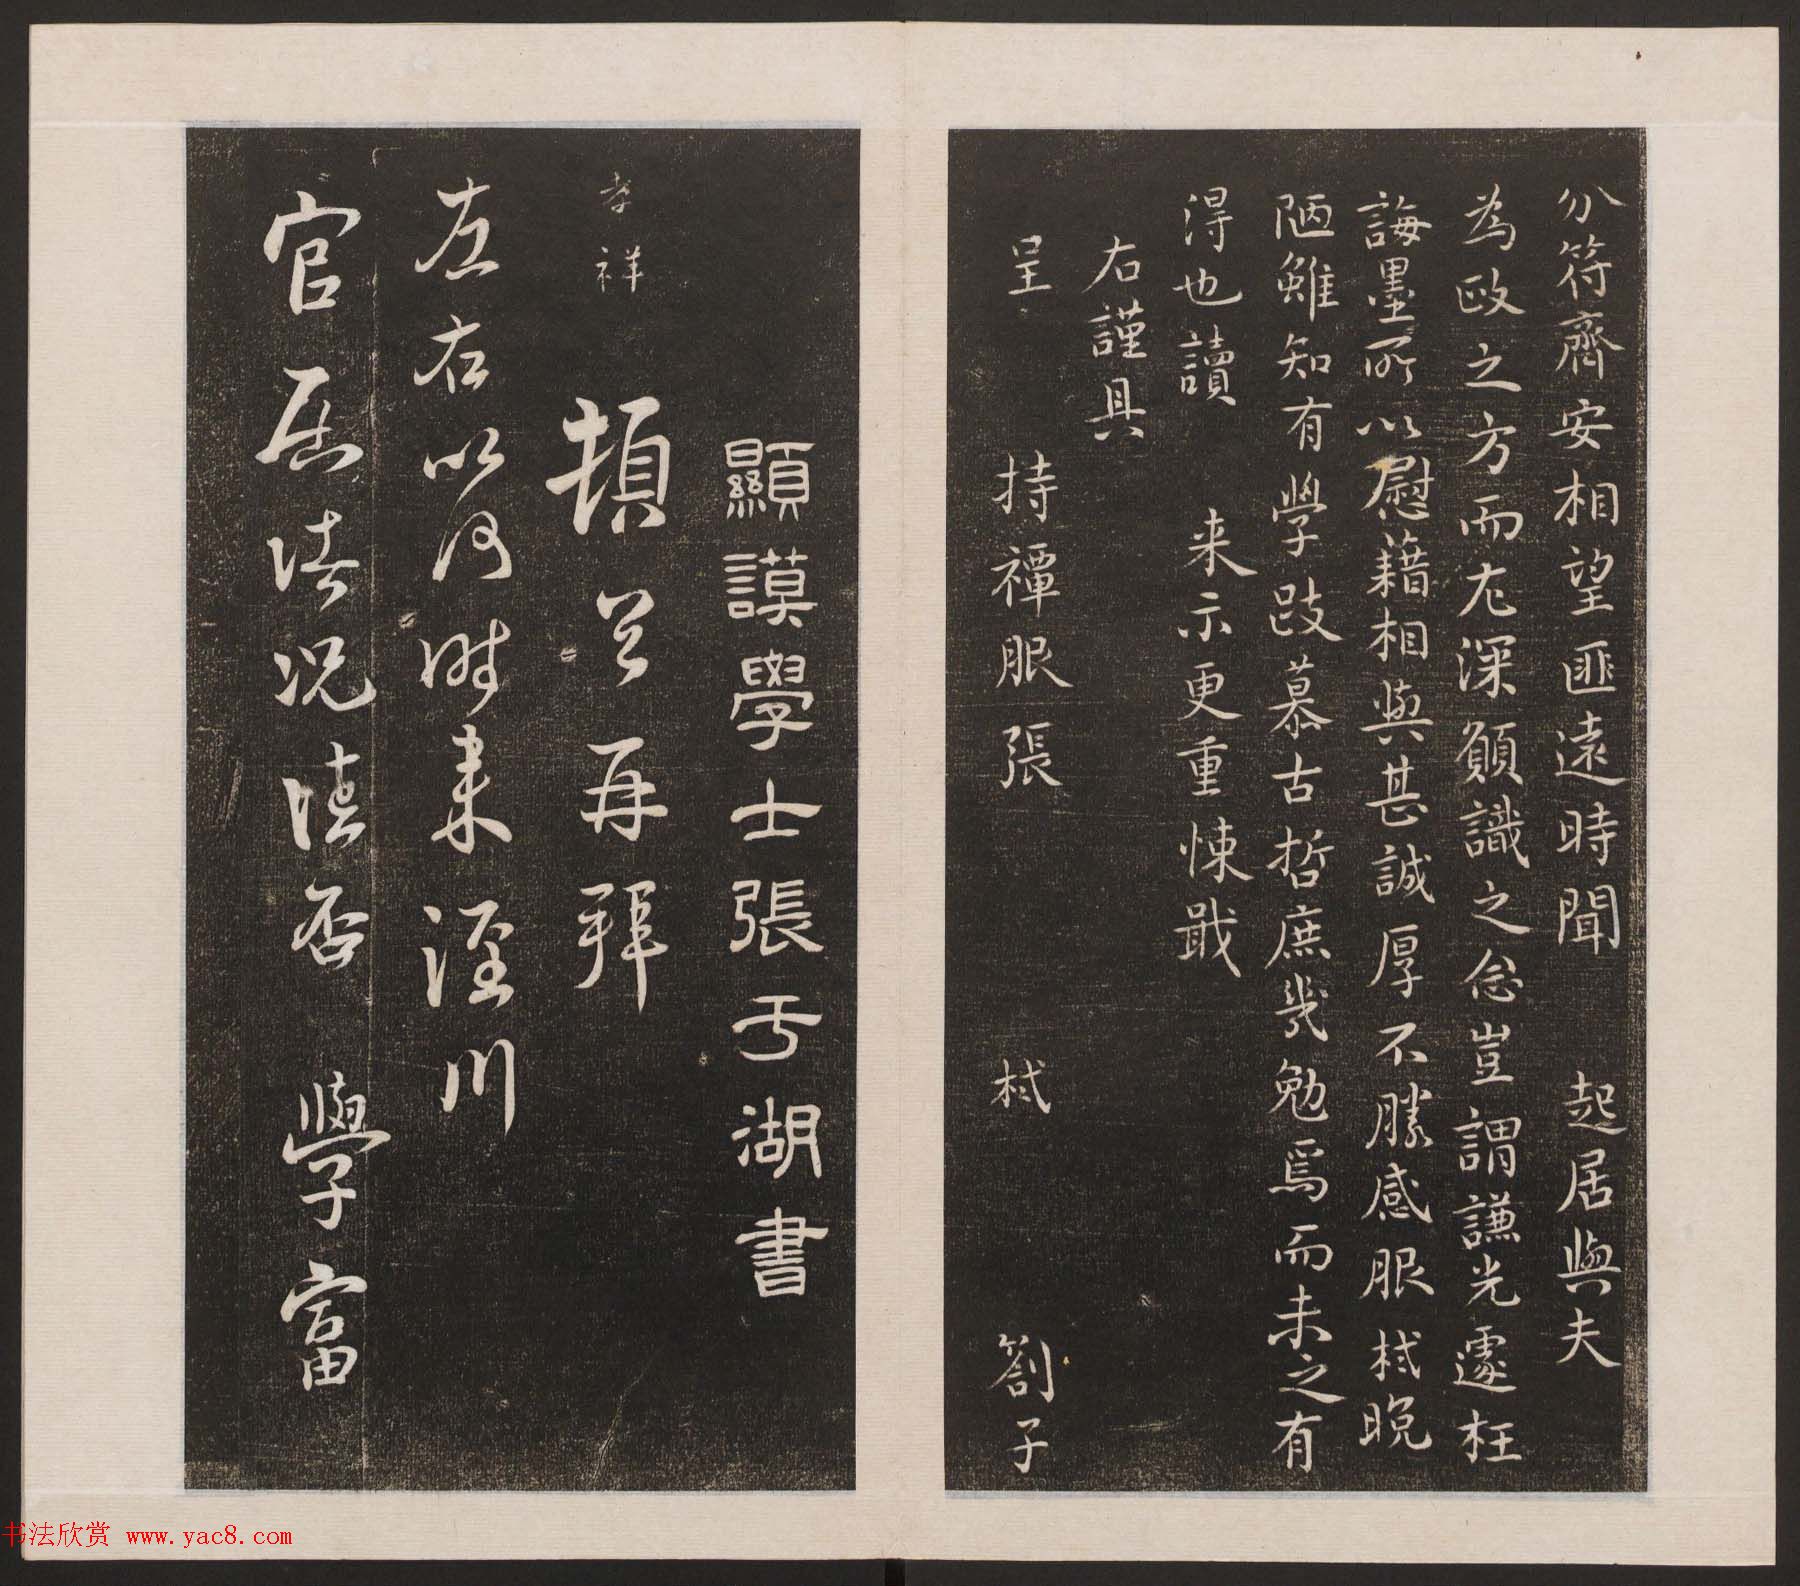 分符齊安相望匪遠時聞起居與夫
為政之方而尤深願識之念豈謂謙光遽枉
誨墨所以慰藉相與甚誠厚不勝感服栻晚
陋雖知有學跂慕古哲庶幾勉焉而未之有
得也讀来示更重悚戢
右謹具
呈
持禫服張栻劄子
顯謨學士張于湖書
孝祥
頓首再拜
左右以何時来涇川
官居清况佳否學富
书法欣赏 www.yac8.com